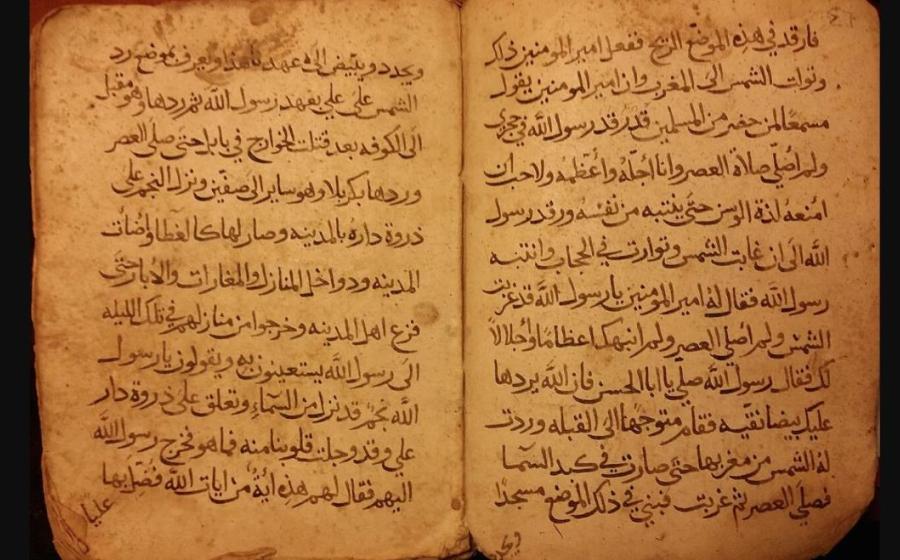 فارقد في هذه الموضع الريح ففعل امير المومنين ذلك
وتوات الشمس الى المغرب وان امير المومنين يقول
مسمعًا لمن حضر من المسلمين قد رقد رسول الله في حجري
ولم اُصلّي صلاة العصر وانا اُجلّهُ واُعظّمه ولا احب ان
امنعه لذة الوسن حتى ينتبه من نفسه ورقد رسول
الله الى ان غابت الشمس وتوارت في الحجاب وانتبه
رسول الله فقال لهُ امير المومنين يا رسول الله قد غربت
الشمس ولم اُصلي العصر ولم انبهك اعظامًا واجلالًا
لك فقال رسول الله صلي يا ابا الحسن فان الله يردها
عليك بيضا نقيه فقام متوجهًا الى القبله وردت
لهُ الشمس من مغربها حتى صارت في كبد السما
فصلى العصر ثم غربت فبني في ذلك الموضع مسجدًا
ويجدد
ويجدد ويبيض الى عهد نا هذا ويعرف بموضع رد
الشمس على علي بعهد رسول الله ثم ردها وهو مقبل
الى الكوفه بعد قتلت الخوارج في بابل حتى صلى العصر
وردها بكربلا وهو ساير الى صفين ونزل النجم على
ذروة دارهُ بالمدينه وصار لها كالغطا واضات
المدينه ودواخل المنازل والمغارات والابار حتى
فزع اهل المدينه وخرجوا من منازلهم في تلك الليله
الى رسول الله يستعينون به ويقولون يا رسول
الله نجم قد نزل من السماء وتعلق على ذروة دار
علي وقد وجلت قلوبنا منه فما هو فخرج رسول الله
اليهم فقال لهم هذه اية من ايات الله فضل بها
عليا